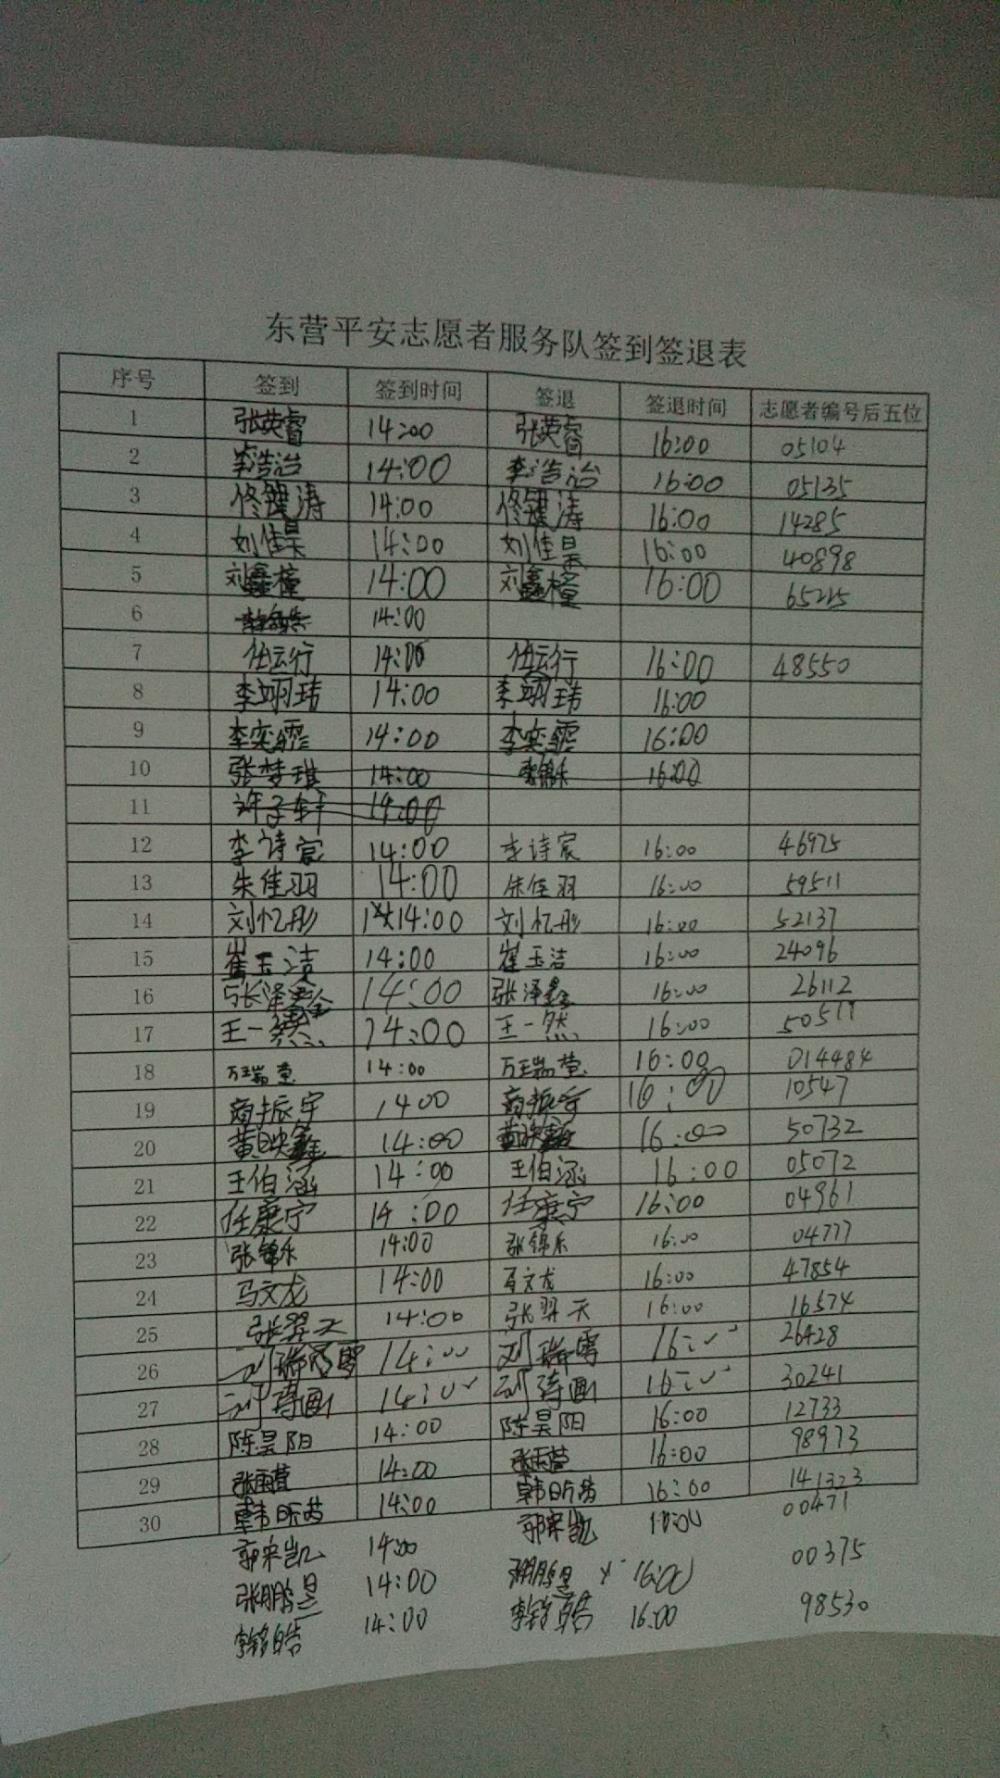 东营平安志愿者服务队签到签退表
序号 签到 签到时间 签退 签退时间 志愿者编号后五位
1 张英睿 14:00 张英睿 16:00 05104
2 李浩冶 14:00 李浩冶 16:00 05135
3 佟键涛 14:00 佟键涛 16:00 14285
4 刘佳昊 14:00 刘佳昊 16:00 40898
5 刘鑫橦 14:00 刘鑫橦 16:00 65215
6 14:00
7 任云行 14:00 任云行 16:00 48550
8 李翊玮 14:00 李翊玮 16:00
9 李奕霏 14:00 李奕霏 16:00
10 张梦琪 14:00 16:00
11 许子轩 14:00
12 李诗宸 14:00 李诗宸 16:00 46975
13 朱佳羽 14:00 朱佳羽 16:00 59511
14 刘忆彤 14:00 刘忆彤 16:00 52137
15 崔玉洁 14:00 崔玉洁 16:00 24096
16 张泽鑫 14:00 张泽鑫 16:00 26112
17 王一然 14:00 王一然 16:00 50577
18 万瑞莹 14:00 万瑞莹 16:00 014484
19 商振宇 1400 商振宇 16:00 10547
20 黄映鑫 14:00 16:00 50732
21 王伯涵 14:00 王伯涵 16:00 05072
22 任康宁 14:00 任康宁 16:00 04961
23 张锦乐 14:00 张锦乐 16:00 04777
24 马文龙 14:00 马文龙 16:00 47854
25 张羿天 14:00 张羿天 16:00 16574
26 刘瑞雪 14:00 刘瑞雪 16:00 26428
27 刘诗画 14:00 刘诗画 16:00 30241
28 陈昊阳 14:00 陈昊阳 16:00 12733
29 张雨萱 14:00 张雨萱 16:00 98973
30 韩昕芮 14:00 韩昕芮 16:00 141323
郭宋凯 14:00 郭宋凯 16:00 00471
张鹏昱 14:00 张鹏昱 16:00 00375
李铭皓 14:00 李铭皓 16:00 98530